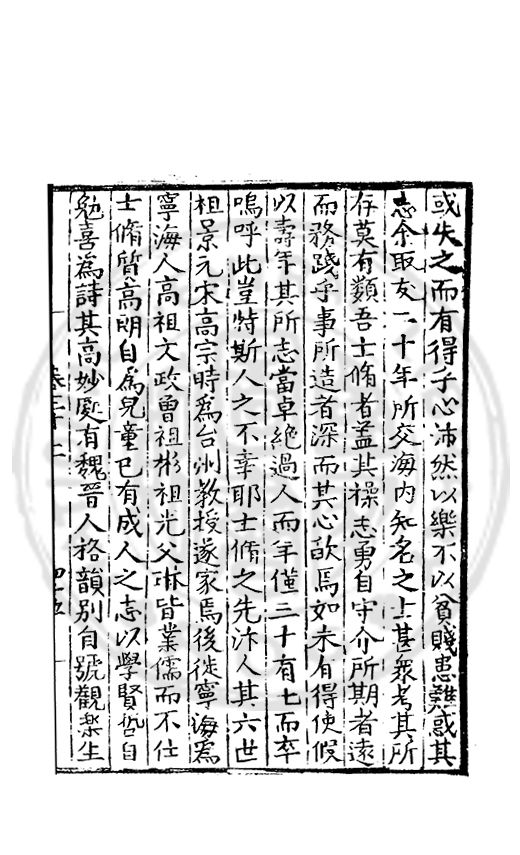 或失之而有得乎心沛然以樂不以貧賤患難惑其
志余取友二十年所交海内知名之士甚衆考其所
存莫有類吾士脩者盖其操志勇自守介所期者遠
而務踐乎事所造者深而其心歉焉如未有得使假
以壽年其所志當卓絶過人而年僅三十有七而卒
嗚呼此豈特斯人之不幸耶士脩之先汴人其六世
祖景元宋高宗時爲台州教授遂家焉後徙寧海爲
寧海人高祖文政曾祖彬祖光父琳皆業儒而不仕
士脩質高明自爲兒童已有成人之志以學賢哲自
勉喜爲詩其高妙處有魏晉人格韻别自號觀樂生